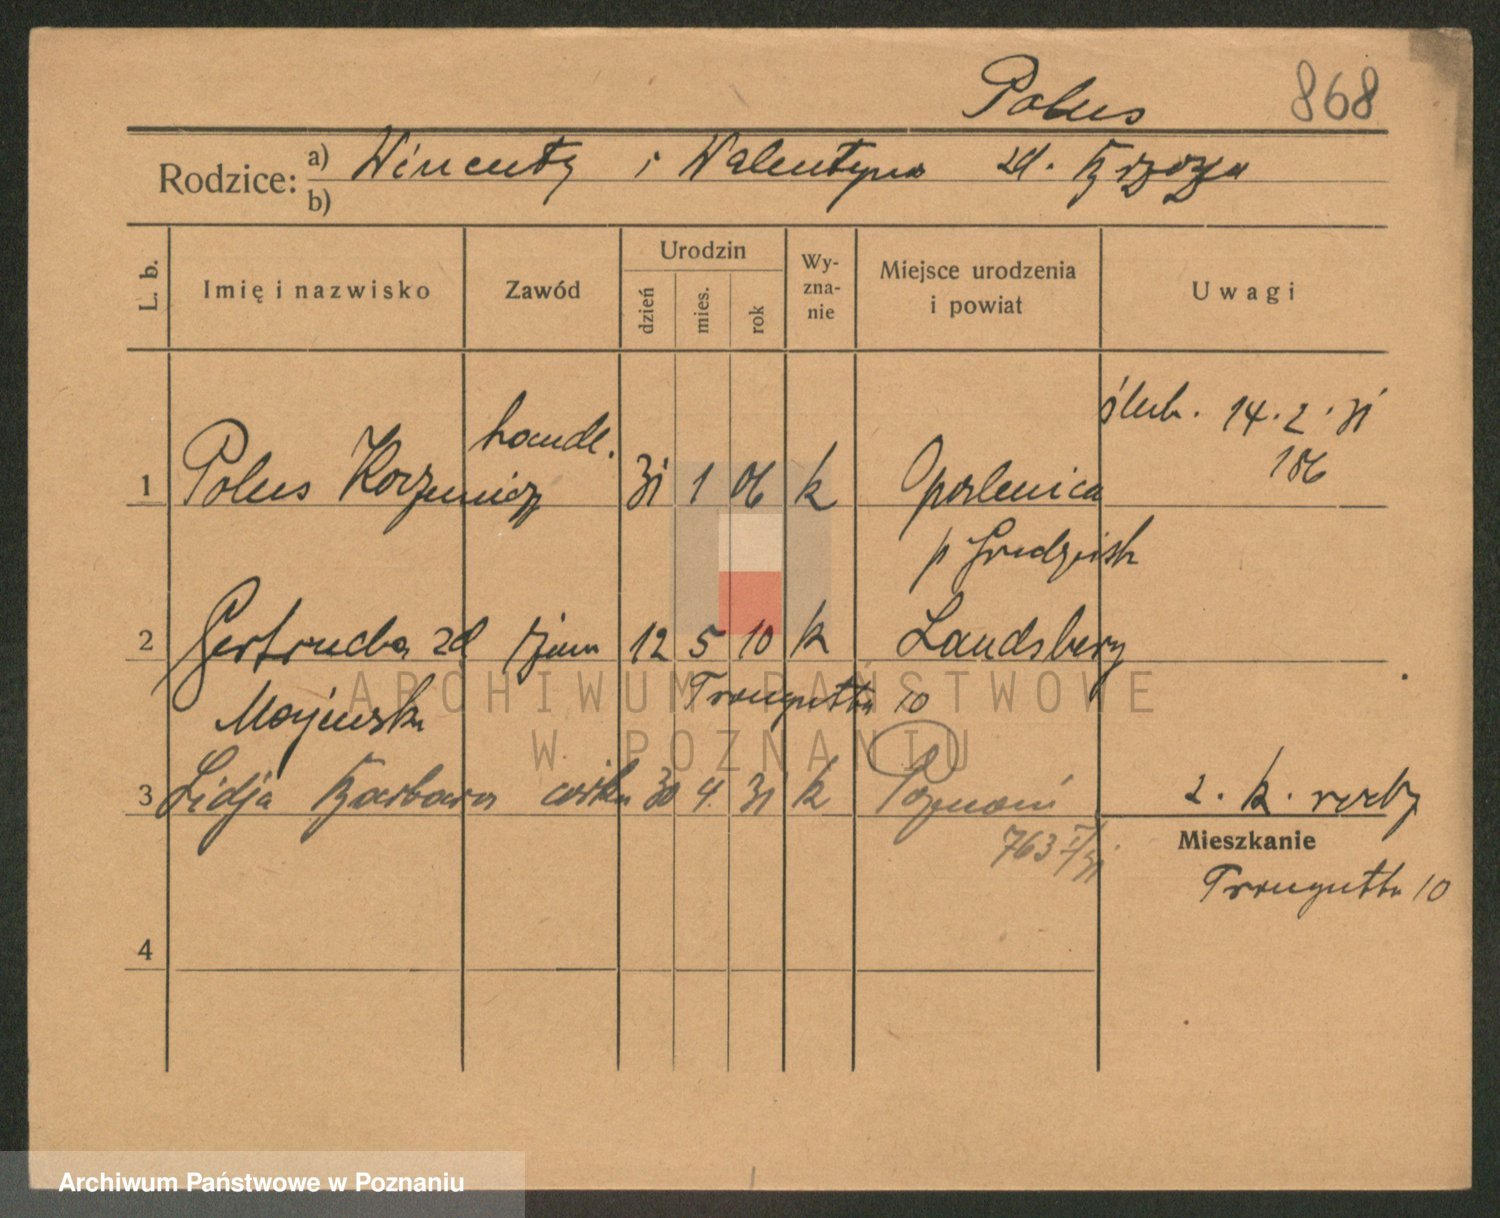 Polus 868
Rodzice: a) Wincenty i Walentyna zd.
b)
L. b. Imię i nazwisko Zawód Urodzin dzień mies. rok Wy-zna-nie Miejsce urodzenia i powiat Uwagi
ślub. 14. 2. 31
186
handl.
1 Polus Kazimierz 31 1 06 k Opalenica
p Grodzisk
2 Gertruda zd żona 12 5 10 k Landsberg
Majewska Traugutta 10
3 Lidja Barbara córka 30 4. 31 k Poznań 2. k.
763 I/31
Mieszkanie
Traugutta 10
4
ARCHIWUM PAŃSTWOWE
W POZNANIU
Archiwum Państwowe w Poznaniu